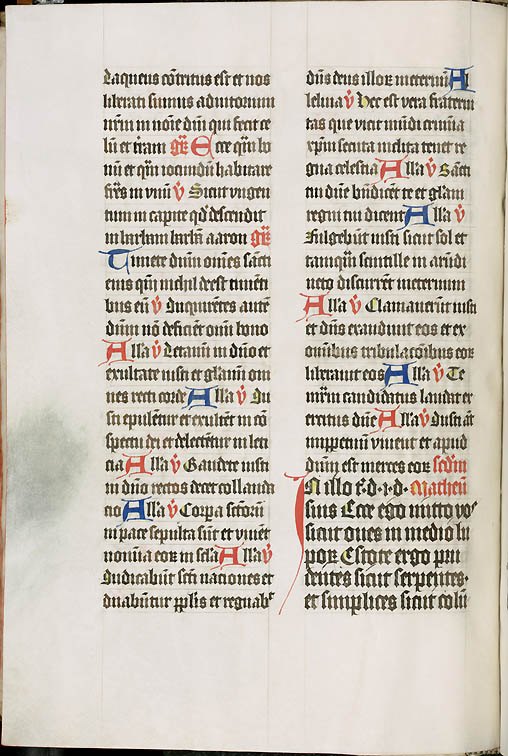 laqueus co̅tritus est et nos
liberati sumus adiutorium
nr̅m in no̅ie dn̅i qui fecit ce
lu̅ et tram gr̅ Ecce qm̅ bo
nu̅ et qm̅ iocundu̅ habitare
fr̅es in unu̅ v̅ Sicut ungen
tum in capite qd̕ descendit
in barbam barba̅ aaron gr̅
Timete dnm̅ om̅es sc̅ti
eius qm̅ nichil deest timenti
bus eu̅ v̅ Inquirentes aute̅
dnm̅ no̅ deficie̅t om̅i bono
Alla v̅ Letamini in dn̅o et
exultate iusti et gl̅amini om
nes recti corde Alla v̅ Iu
sti epulentur et exulte̅t in co̅
spectu dei et delecte̅tur in leti
cia Alla v̅ Gaudete iusti
in dn̅o rectos decet collauda
cio Alla v̅ Corpa sc̅torum̅
in pace sepulta su̅t et viue̅t
nomina eoꝝ in sc̅la Alla v̅
Iudicabu̅t sc̅ti naciones et
dn̅abuntur ppl̅is et regnabit
dn̅s deus illoꝝ in eternu̅ Al
leluia v̅ Hec est vera fraterni
tas que vicit mu̅di crimina
xp̅m secuta inclita tenet re
gna celestia Alla v̅ Sancti
tui dn̅e bn̅dicent te et gl̅am
regni tui dicent Alla v̅
Fulgebu̅t iusti sicut sol et
tamqua̅ scintille in aru̅di
neto discurre̅t in eternum
Alla v̅ Clamauerunt iusti
et dn̅s exaudiuit eos et ex
omnibus tribulac̅o̅ibus eoꝝ
liberauit eos Alla v̅ Te
mr̅m candidatus laudat ex
ercitus dn̅e Alla v̅ Iusti aut̅
inppetuu̅ viuent et apud
dnm̅ est merces eoꝝ scd̅m
IN illo t̅. d. i. d. Matheu̅
suis Ecce ego mitto vos
sicut oues in medio lu
poꝝ Estote ergo pru
dentes sicut serpentes.
et simplices sicut colu̅